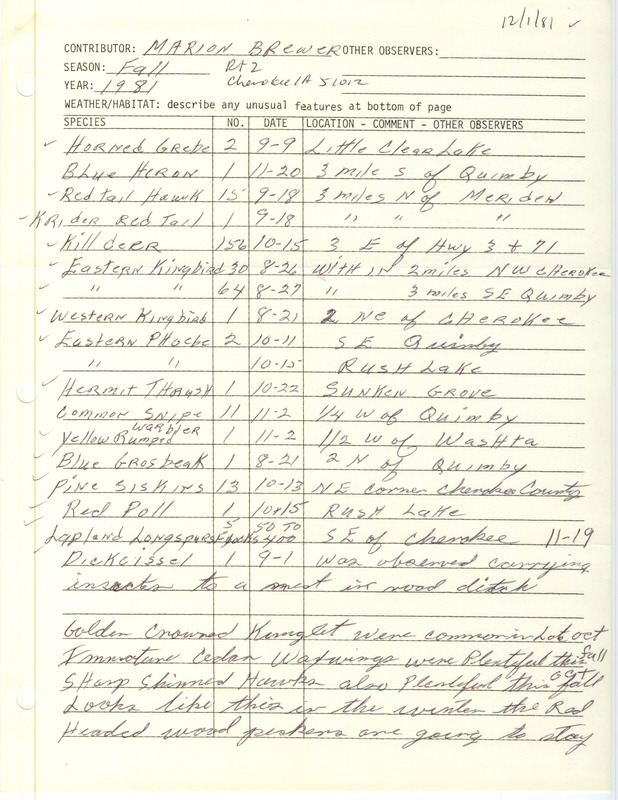 12/1/81 ✓
CONTRIBUTOR: MARION BREWER OTHER OBSERVERS:
SEASON: Fall Rt 2
YEAR: 1981 Cherokee IA 51012
WEATHER/HABITAT: describe any unusual features at bottom of page
SPECIES NO. DATE LOCATION - COMMENT - OTHER OBSERVERS
✓ Horned Grebe 2 9-9 Little Clear Lake
Blue Heron 1 11-20 3 mile S of Quimby
✓ Redtail Hawk 15 9-18 3 miles N of Meriden
✓ Krider Red Tail 1 9-18 " " "
✓ Killdeer 156 10-15 3 E of Hwy 3 + 71
✓ Eastern Kingbird 30 8-26 Within 2 miles NW Cherokee
✓ " " 64 8-27 " 3 miles SE Quimby
✓ Western Kingbird 1 8-21 2 NE of Cherokee
✓ Eastern Phoebe 2 10-11 SE Quimby
" " 10-15 Rush Lake
✓ Hermit Thrush 1 10-22 Sunken Grove
✓ Common Snipe 11 11-2 1/4 W of Quimby
✓ Yellow Rumped Warbler 1 11-2 1/2 W of Washta
✓ Blue Grosbeak 1 8-21 2 N of Quimby
✓ Pine Siskins 13 10-13 NE corner Cherokee County
✓ Red Poll 1 10-15 Rush Lake
✓ Lapland Longspurs 5 Flocks 50 to 400 SE of Cherokee 11-19
Dickcissel 1 9-1 was observed carrying
insects to a nest in road ditch
Golden Crowned Kinglet were common in Late Oct
Immature Cedar Waxwings were Plentiful this fall
Sharp Shinned Hawks also Plentiful this fall Oct
Looks like this in the winter the Red
Headed wood peckers are going to stay